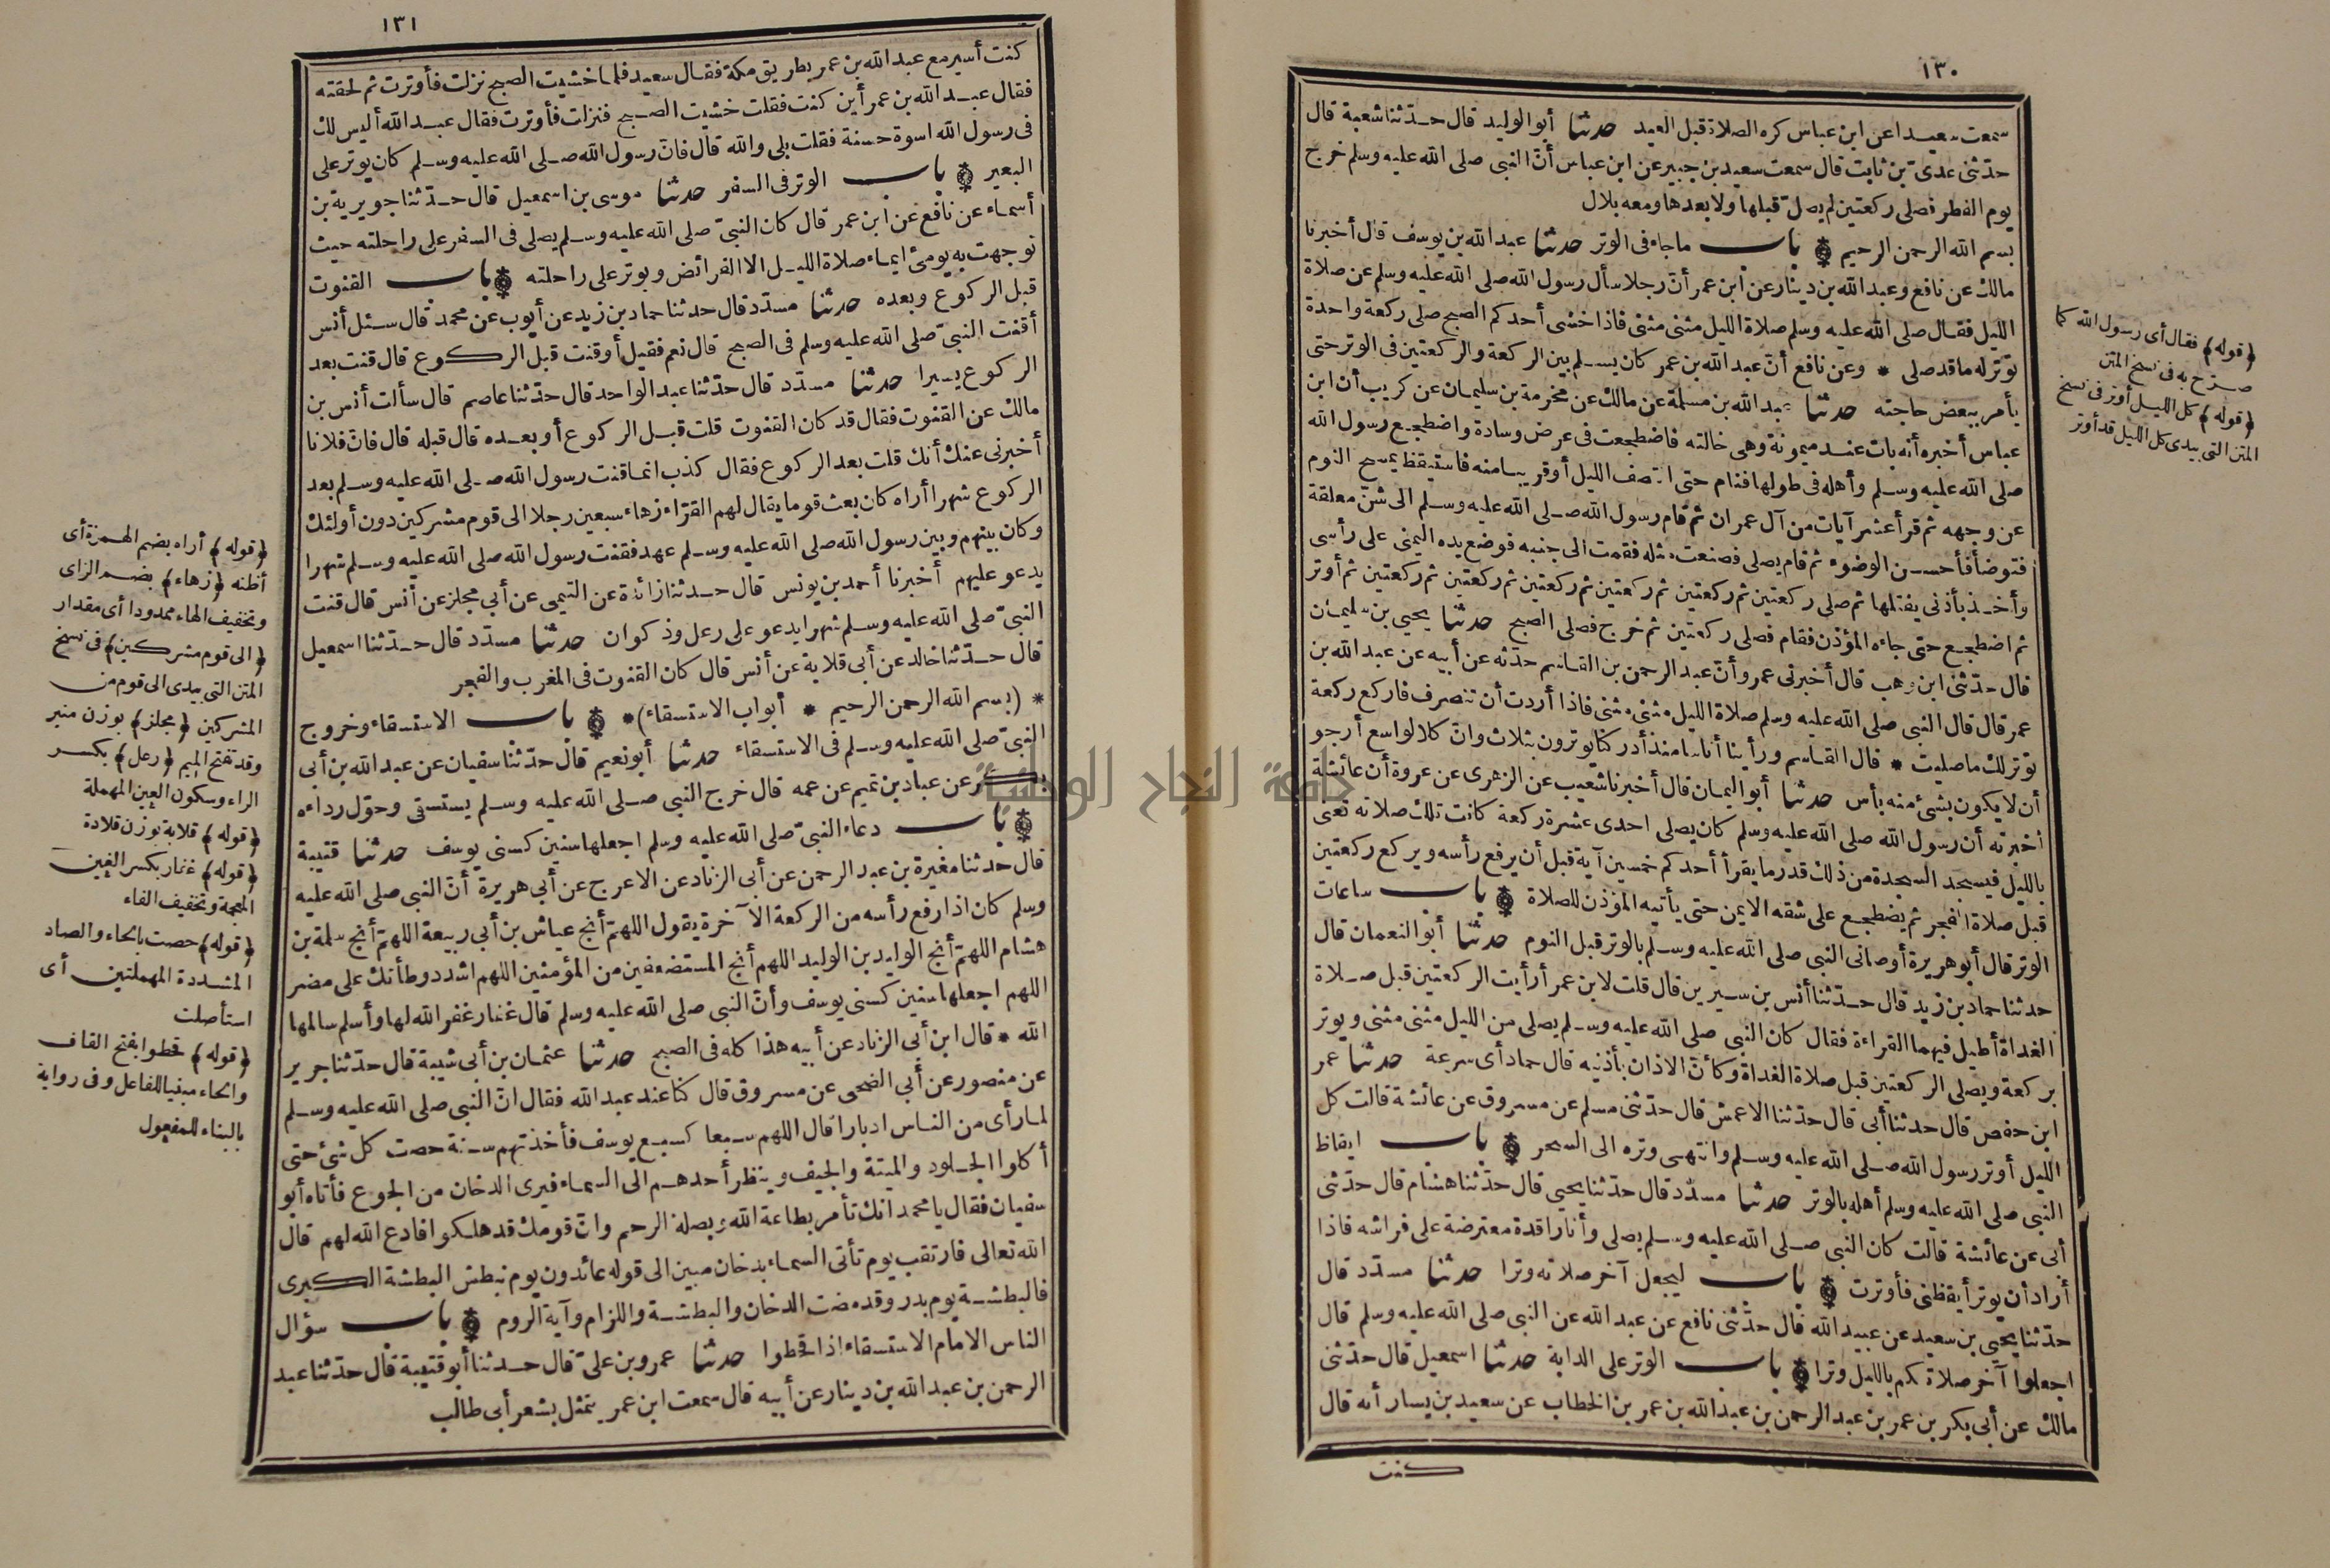 ١٣٠
سمعت سعيدا عن ابن عباس كره الصلاة قبل العيد حدثنا أبو الوليد قال حدّثنا شعبة قال
حدّثنى عدىّ بن ثابت قال سمعت سعيد بن جبير عن ابن عباس أنّ النبى صلى الله عليه وسلم خرج
يوم الفطر فصلى ركعتين لم يصلّ قبلها ولا بعدها ومعه بلال
بسم الله الرحمن الرحيم باب ما جاء فى الوتر حدثنا عبد الله بن يوسف قال أخبرنا
مالك عن نافع وعبد الله بن دينار عن ابن عمر أنّ رجلا سأل رسول الله صلى الله عليه وسلم عن صلاة
الليل فقال صلى الله عليه وسلم صلاة الليل مثنى مثنى فاذا خشى أحدكم الصبح صلى ركعة واحدة
توتر له ما قد صلى * وعن نافع أنّ عبد الله بن عمر كان يسلم بين الركعة والركعتين فى الوتر حتى
يأمر ببعض حاجته حدثنا عبد الله بن مسلمة عن مالك عن مخرمة بن سليمان عن كريب أن ابن
عباس أخبره أنه بات عند ميمونة وهى خالته فاضطجعت فى عرض وسادة واضطجع رسول الله
صلى الله عليه وسلم وأهله فى طولها فنام حتى انتصف الليل أو قريبا منه فاستيقظ يمسح النوم
عن وجهه ثم قرأ عشر آيات من آل عمران ثم قام رسول الله صلى الله عليه وسلم الى شنّ معلقة
فتوضأ فأحسن الوضوء ثم قام يصلى فصنعت مثله فقمت الى جنبه فوضع يده اليمنى على رأسى
وأخذ بأذنى يفتلها ثم صلى ركعتين ثم ركعتين ثم ركعتين ثم ركعتين ثم ركعتين ثم ركعتين ثم أوتر
ثم اضطجع حتى جاءه المؤذن فقام فصلى ركعتين ثم خرج فصلى الصبح حدثنا يحيى بن سليمان
قال حدّثنى ابن وهب قال أخبرنى عمرو أنّ عبد الرحمن بن القاسم حدّثه عن أبيه عن عبد الله بن
عمر قال قال النبى صلى الله عليه وسلم صلاة الليل مثنى مثنى فاذا أردت أن تنصرف فاركع ركعة
توتر لك ما صليت * قال القاسم ورأينا أناسا منذ أدركنا يوترون بثلاث وانّ كلا لواسع أرجو
أن لا يكون بشئ منه بأس حدثنا أبو اليمان قال أخبرنا شعيب عن الزهرى عن عروة أن عائشة
أخبرته أن رسول الله صلى الله عليه وسلم كان يصلى احدى عشرة ركعة كانت تلك صلاته تعنى
بالليل فيسجد السجدة من ذلك قدر ما يقرأ أحدكم خمسين آية قبل أن يرفع رأسه ويركع ركعتين
قبل صلاة الفجر ثم يضطجع على شقه الايمن حتى يأتيه المؤذن للصلاة باب ساعات
الوتر قال أبو هريرة أوصانى النبى صلى الله عليه وسلم بالوتر قبل النوم حدثنا أبو النعمان قال
حدثنا حماد بن زيد قال حدّثنا أنس بن سيرين قال قلت لابن عمر أرأيت الركعتين قبل صلاة
الغداة أطيل فيهما القراءة فقال كان النبى صلى الله عليه وسلم يصلى من الليل مثنى مثنى ويوتر
بركعة ويصلى الركعتين قبل صلاة الغداة وكأنّ الاذان بأذنيه قال حماد أى سرعة حدثنا عمر
ابن حفص قال حدثنا أبى قال حدّثنا الاعمش قال حدّثنى مسلم عن مسروق عن عائشة قالت كل
الليل أوتر رسول الله صلى الله عليه وسلم وانتهى وتره الى السحر باب ايقاظ
النبى صلى الله عليه وسلم أهله بالوتر حدثنا مسدّد قال حدّثنا يحيى قال حدّثنا هشام قال حدّثنى
أبى عن عائشة قالت كان النبى صلى الله عليه وسلم يصلى وأنا راقدة معترضة على فراشه فاذا
أراد أن يوتر أيقظنى فأوترت باب ليجعل آخر صلاته وترا حدثنا مسدّد قال
حدّثنا يحيى بن سعيد عن عبيد الله قال حدّثنى نافع عن عبد الله عن النبى صلى الله عليه وسلم قال
اجعلوا آخر صلاتكم بالليل وترا باب الوتر على الدابة حدثنا اسمعيل قال حدّثنى
مالك عن أبى بكر بن عمر بن عبد الرحمن بن عبد الله بن عمر بن الخطاب عن سعيد بن يسار أنه قال
كنت
﴿قوله﴾ فقال أى رسول الله كما
صرّح به فى نسخ المتن
﴿قوله﴾ كل الليل أوتر فى نسخ
المتن التى بيدى كل الليل قد أوتر
١٣١
كنت أسير مع عبد الله بن عمر بطريق مكة فقال سعيد فلما خشيت الصبح نزلت فأوترت ثم لحقته
فقال عبد الله بن عمر أين كنت فقلت خشيت الصبح فنزلت فأوترت فقال عبد الله أليس لك
فى رسول الله اسوة حسنة فقلت بلى والله قال فانّ رسول الله صلى الله عليه وسلم كان يوتر على
البعير باب الوتر فى السفر حدثنا موسى بن اسمعيل قال حدّثنا جويرية بن
أسماء عن نافع عن ابن عمر قال كان النبىّ صلى الله عليه وسلم يصلى فى السفر على راحلته حيث
توجهت به يومئ ايماء صلاة الليل الا الفرائض ويوتر على راحلته باب القنوت
قبل الركوع وبعده حدثنا مسدّد قال حدثنا حماد بن زيد عن أيوب عن محمد قال سئل أنس
أقنت النبىّ صلى الله عليه وسلم فى الصبح قال نعم فقيل أوقنت قبل الركوع قال قنت بعد
الركوع يسيرا حدثنا مسدّد قال حدّثنا عبد الواحد قال حدّثنا عاصم قال سألت أنس بن
مالك عن القنوت فقال قد كان القنوت قلت قبل الركوع أو بعده قال قبله قال فانّ فلانا
أخبرنى عنك أنك قلت بعد الركوع فقال كذب انما قنت رسول الله صلى الله عليه وسلم بعد
الركوع شهرا أراه كان بعث قوما يقال لهم القرّاء زهاء سبعين رجلا الى قوم مشركين دون أولئك
وكان بينهم وبين رسول الله صلى الله عليه وسلم عهد فقنت رسول الله صلى الله عليه وسلم شهرا
يدعو عليهم أخبرنا أحمد بن يونس قال حدّثنا زائدة عن التيمى عن أبى مجلز عن أنس قال قنت
النبىّ صلى الله عليه وسلم شهرا يدعو على رعل وذكوان حدثنا مسدّد قال حدّثنا اسمعيل
قال حدّثنا خالد عن أبى قلابة عن أنس قال كان القنوت فى المغرب والفجر
* (بسم الله الرحمن الرحيم * أبواب الاستسقاء) * باب الاستسقاء وخروج
النبىّ صلى الله عليه وسلم فى الاستسقاء حدثنا أبو نعيم قال حدّثنا سفيان عن عبد الله بن أبى
بكر عن عباد بن تميم عن عمه قال خرج النبى صلى الله عليه وسلم يستسقى وحوّل رداءه
باب دعاء النبىّ صلى الله عليه وسلم اجعلها سنين كسنى يوسف حدثنا قتيبة
قال حدّثنا مغيرة بن عبد الرحمن عن أبى الزناد عن الاعرج عن أبى هريرة أنّ النبى صلى الله عليه
وسلم كان اذا رفع رأسه من الركعة الآخرة يقول اللهمّ أنج عياش بن أبى ربيعة اللهمّ أنج سلمة بن
هشام اللهمّ أنج الوليد بن الوليد اللهم أنج المستضعفين من المؤمنين اللهم اشدد وطأتك على مضر
اللهم اجعلها سنين كسنى يوسف وأنّ النبى صلى الله عليه وسلم قال غفار غفر الله لها وأسلم سالمها
الله * قال ابن أبى الزناد عن أبيه هذا كله فى الصبح حدثنا عثمان بن أبى شيبة قال حدّثنا جرير
عن منصور عن أبى الضحى عن مسروق قال كنا عند عبد الله فقال انّ النبى صلى الله عليه وسلم
لما رأى من الناس ادبارا قال اللهم سبعا كسبع يوسف فأخذتهم سنة حصت كل شئ حتى
أكلوا الجلود والميتة والجيف وينظر أحدهم الى السماء فيرى الدخان من الجوع فأتاه أبو
سفيان فقال يا محمد انك تأمر بطاعة الله وبصلة الرحم وانّ قومك قد هلكوا فادع الله لهم قال
الله تعالى فارتقب يوم تأتى السماء بدخان مبين الى قوله عائدون يوم نبطش البطشة الكبرى
فالبطشة يوم بدر وقد مضت الدخان والبطشة واللزام وآية الروم باب سؤال
الناس الامام الاستسقاء اذا قحطوا حدثنا عمرو بن علىّ قال حدّثنا أبو قتيبة قال حدّثنا عبد
الرحمن بن عبد الله بن دينار عن أبيه قال سمعت ابن عمر يتمثل بشعر أبى طالب
﴿قوله﴾ أراه بضم الهمزة أى
أظنه ﴿زهاء﴾ بضم الزاى
وتخفيف الهاء ممدودا أى مقدار
﴿الى قوم مشركين﴾ فى نسخ
المتن التى بيدى الى قوم من
المشركين ﴿مجلز﴾ بوزن منبر
وقد تفتح الميم ﴿رعل﴾ بكسر
الراء وسكون العين المهملة
﴿قوله﴾ قلابة بوزن قلادة
﴿قوله﴾ غفار بكسر الغين
المعجمة وتخفيف الفاء
﴿قوله﴾ حصت بالحاء والصاد
المشددة المهملتين أى
استأصلت
﴿قوله﴾ قحطوا بفتح القاف
والحاء مبنيا للفاعل وفى رواية
بالبناء للمفعول
جامعة النجاح الوطنية